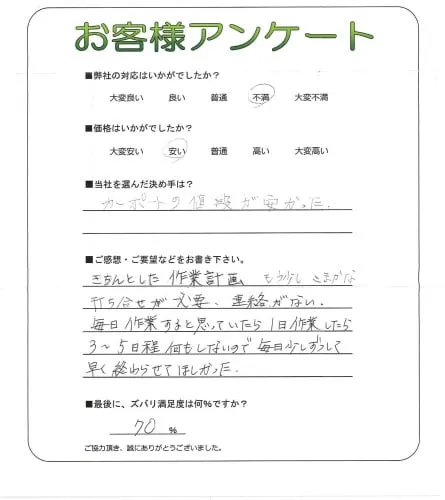 お客様アンケート
■弊社の対応はいかがでしたか?
大変良い 良い 普通 不満 大変不満
■価格はいかがでしたか?
大変安い 安い 普通 高い 大変高い
■当社を選んだ決め手は?
カーポートの値段が安かった.
■ご感想・ご要望などをお書き下さい。
きちんとした 作業計画 もう少し こまかな
打ち合せが 必要、連絡がない.
毎日作業すると思っていたら 1日作業したら
3～5日程 何もしないので 毎日少しずつして
早く終わらせてほしかった.
■最後に、ズバリ満足度は何%ですか?
70 %
ご協力頂き、誠にありがとうございました。